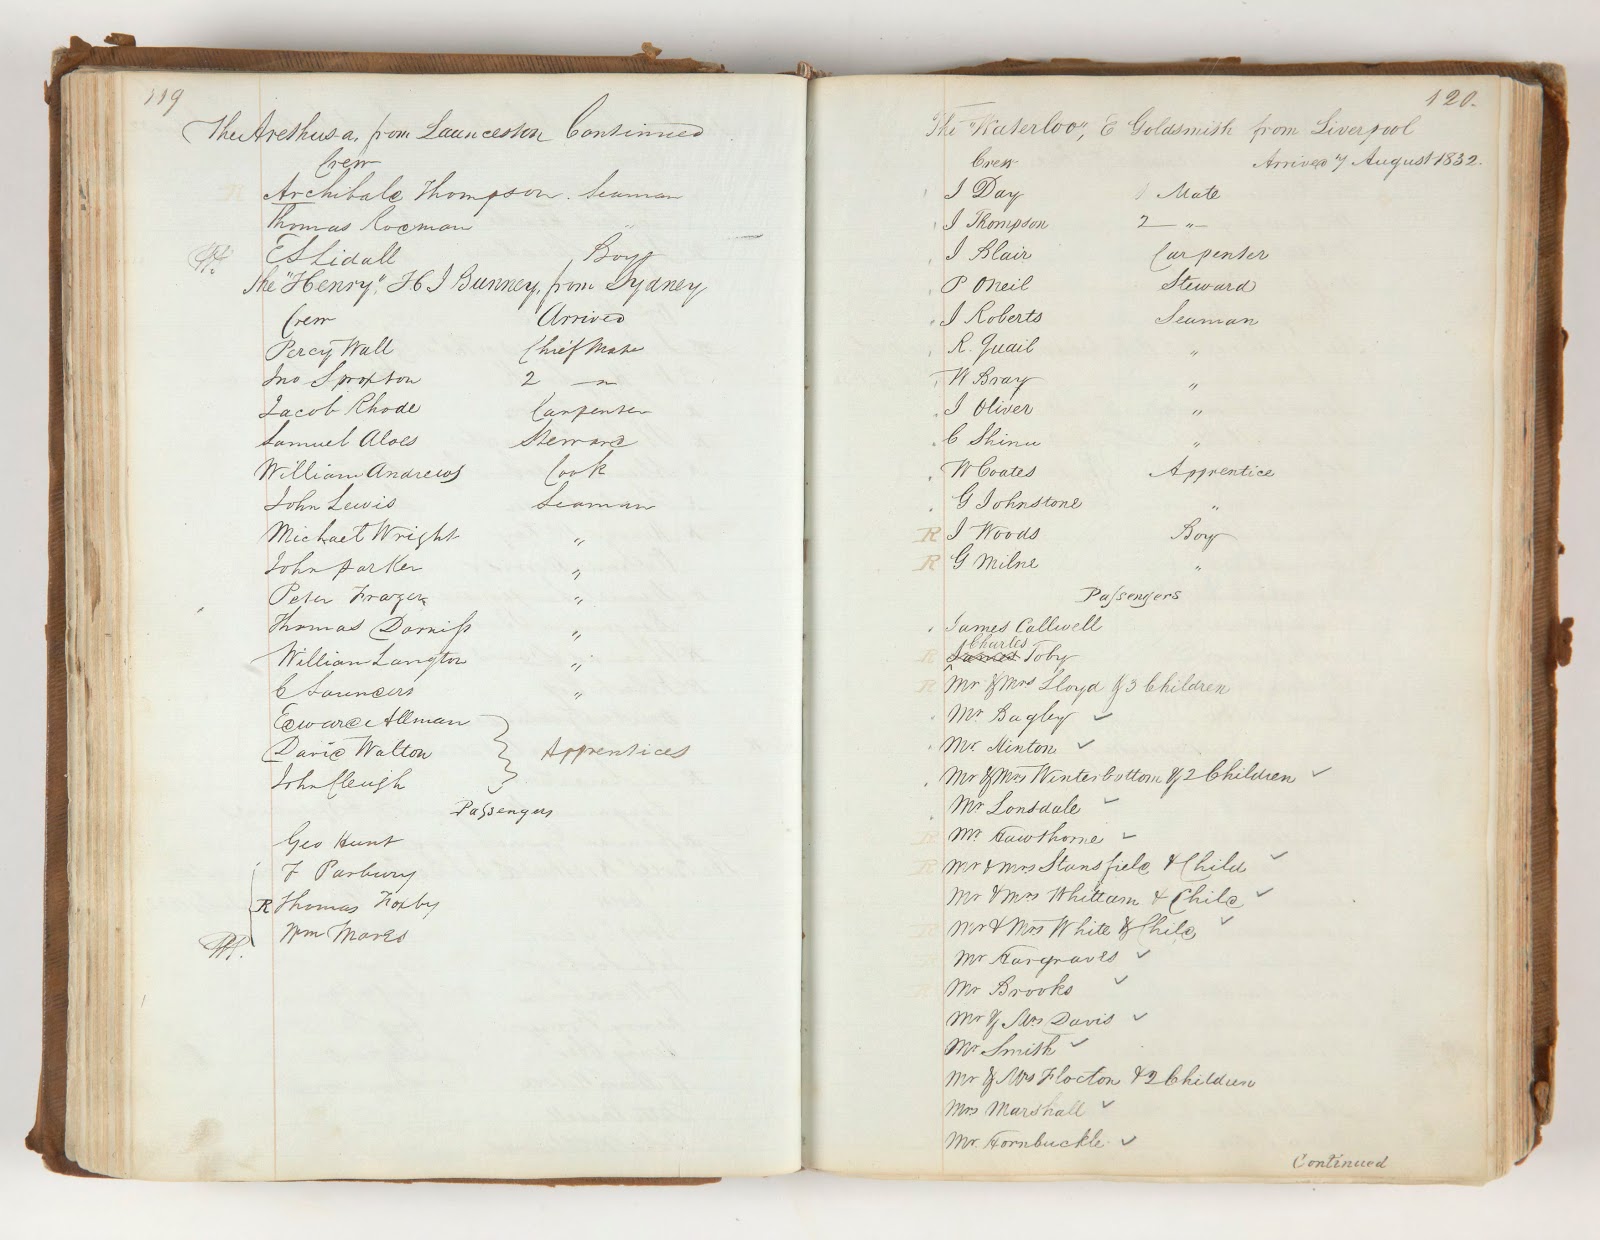 119
The Arethusa, from Launceston Continued
Crew
R Archibald Thompson. Seaman
Thomas Rodman "
E S Lidall Boy
The "Henry", H J Bunney, from Sydney
Crew Arrived
Percy Wall Chief Mate
Jno Sproxton 2 — "
Jacob Rhode Carpenter
Samuel Aloes Steward
William Andrews Cook
John Lewis Seaman
Michael Wright "
John Parker "
Peter Frazer "
Thomas "
William Langton "
C Saunders "
Edward Allman
David Walton Apprentices
John Cleugh
Passengers
Geo Hunt
F Parbury
R Thomas Foxby
Wm
120.
The "Waterloo", E Goldsmith from Liverpool
Crew Arrived 7 August 1832.
J Day 1 Mate
J Thompson 2 — "
J Blair Carpenter
P ONeil Steward
J Roberts Seaman
R. Quail "
W Bray "
J Oliver "
C "
W Coates Apprentice
G Johnstone "
R J Woods Boy
R G Milne "
Passengers
James Callwell
Charles
R James Toby
R Mr & Mrs Lloyd & 3 Children
Mr Bagley ✓
Mr Hinton ✓
Mr & Mrs Winterbottom & 2 Children ✓
Mr Lonsdale ✓
R Mr. Hawthorne ✓
R Mr & Mrs Stansfield & Child ✓
Mr & Mrs Whittam & Child ✓
R Mr & Mrs White & Child ✓
Mr Hargraves ✓
R Mr Brooks ✓
Mr & Mrs Davis ✓
Mr Smith ✓
Mr & Mrs Flocton & 2 Children
Mrs Marshall ✓
Mr. Hornbuckle ✓
Continued